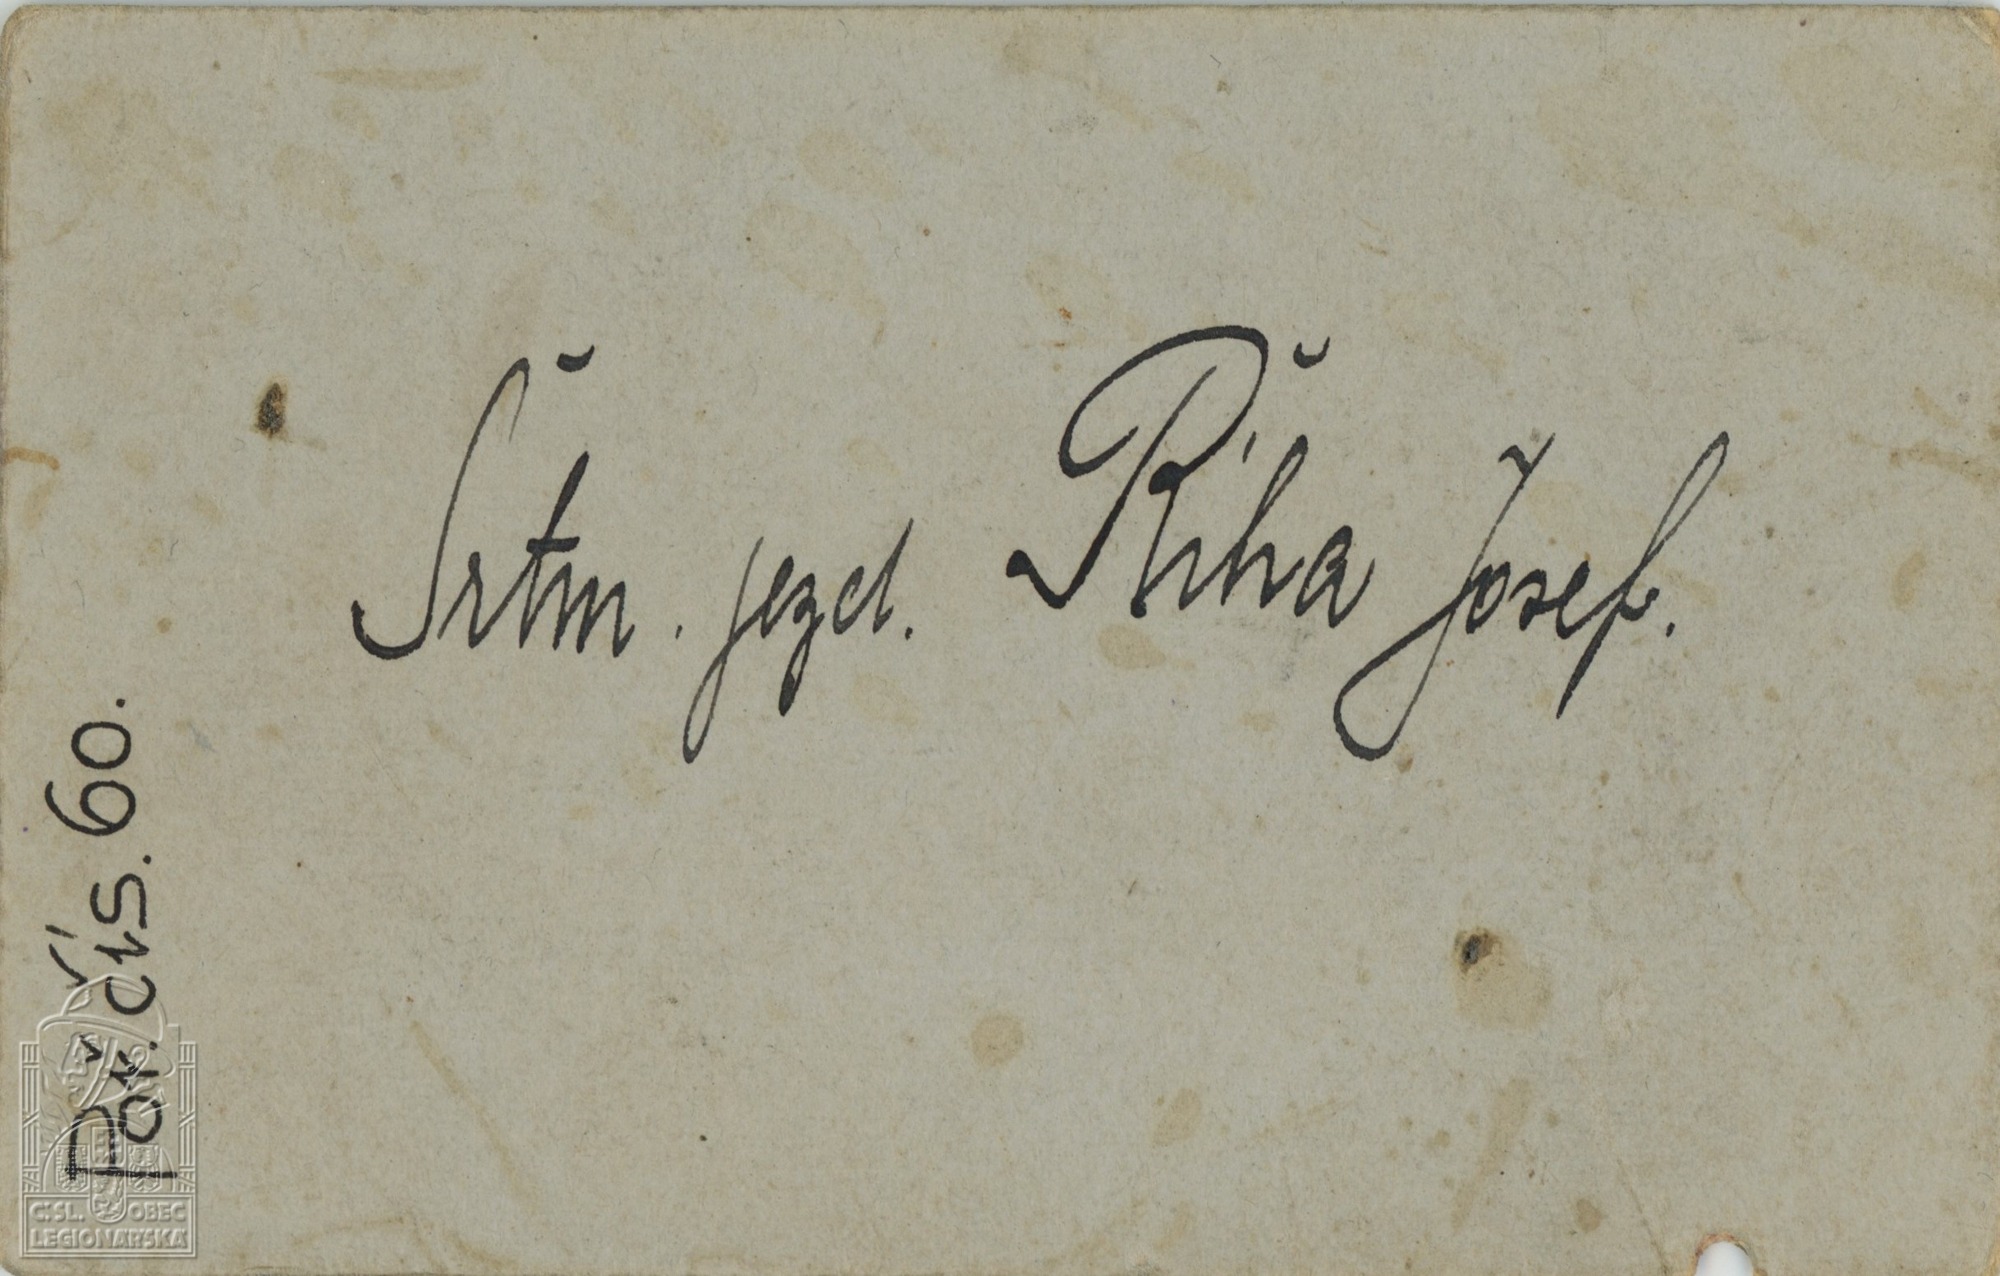 Šrtm. jezd. Říha Josef.
Poř. čís. 60.
Č:SL. OBEC
LEGIONÁŘSKÁ